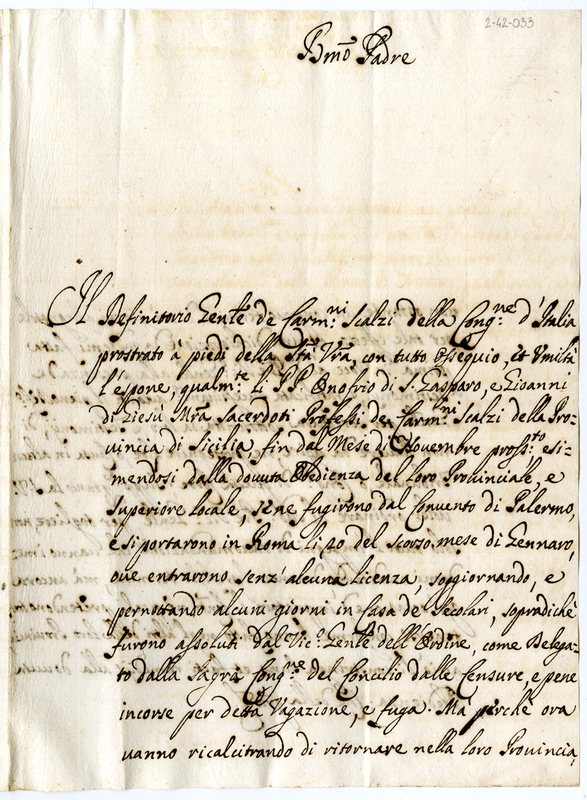 2-42-033
Bmõ Padre
Il Definitorio Gen̄te de Carm:ni Scalzi della Cong:ne d'Italia
prostrato à piedi della Stà Vrã, con tutto Ossequio, et Umiltà
l'espone, qualm:te li PP. Onofrio di S. Gasparo, e Gioanni
di Giesù Mrã Sacerdoti Professi de Carm:ni Scalzi della Pro-
uincia di Sicilia, fin dal Mese di Nouembre pross:to esi-
mendosi dalla douuta Obedienza del loro Prouinciale, e
Superiore locale, se ne fugirono dal Conuento di Palermo,
e si portarono in Roma li 20 del scorso mese di Gennaro,
oue entrarono senz'alcuna licenza, soggiornando, e
pernottando alcuni giorni in Casa de Secolari, sopradiche
furono assoluti dal Vic:o Gen̄te dell'Ordine, come Delega-
to dalla Sagra Cong:ne del Concilio dalle Censure, e pene
incorse per detta Vagazione, e fuga. Mà perche ora
uanno ricalcitrando di ritornare nella loro Prouincia,